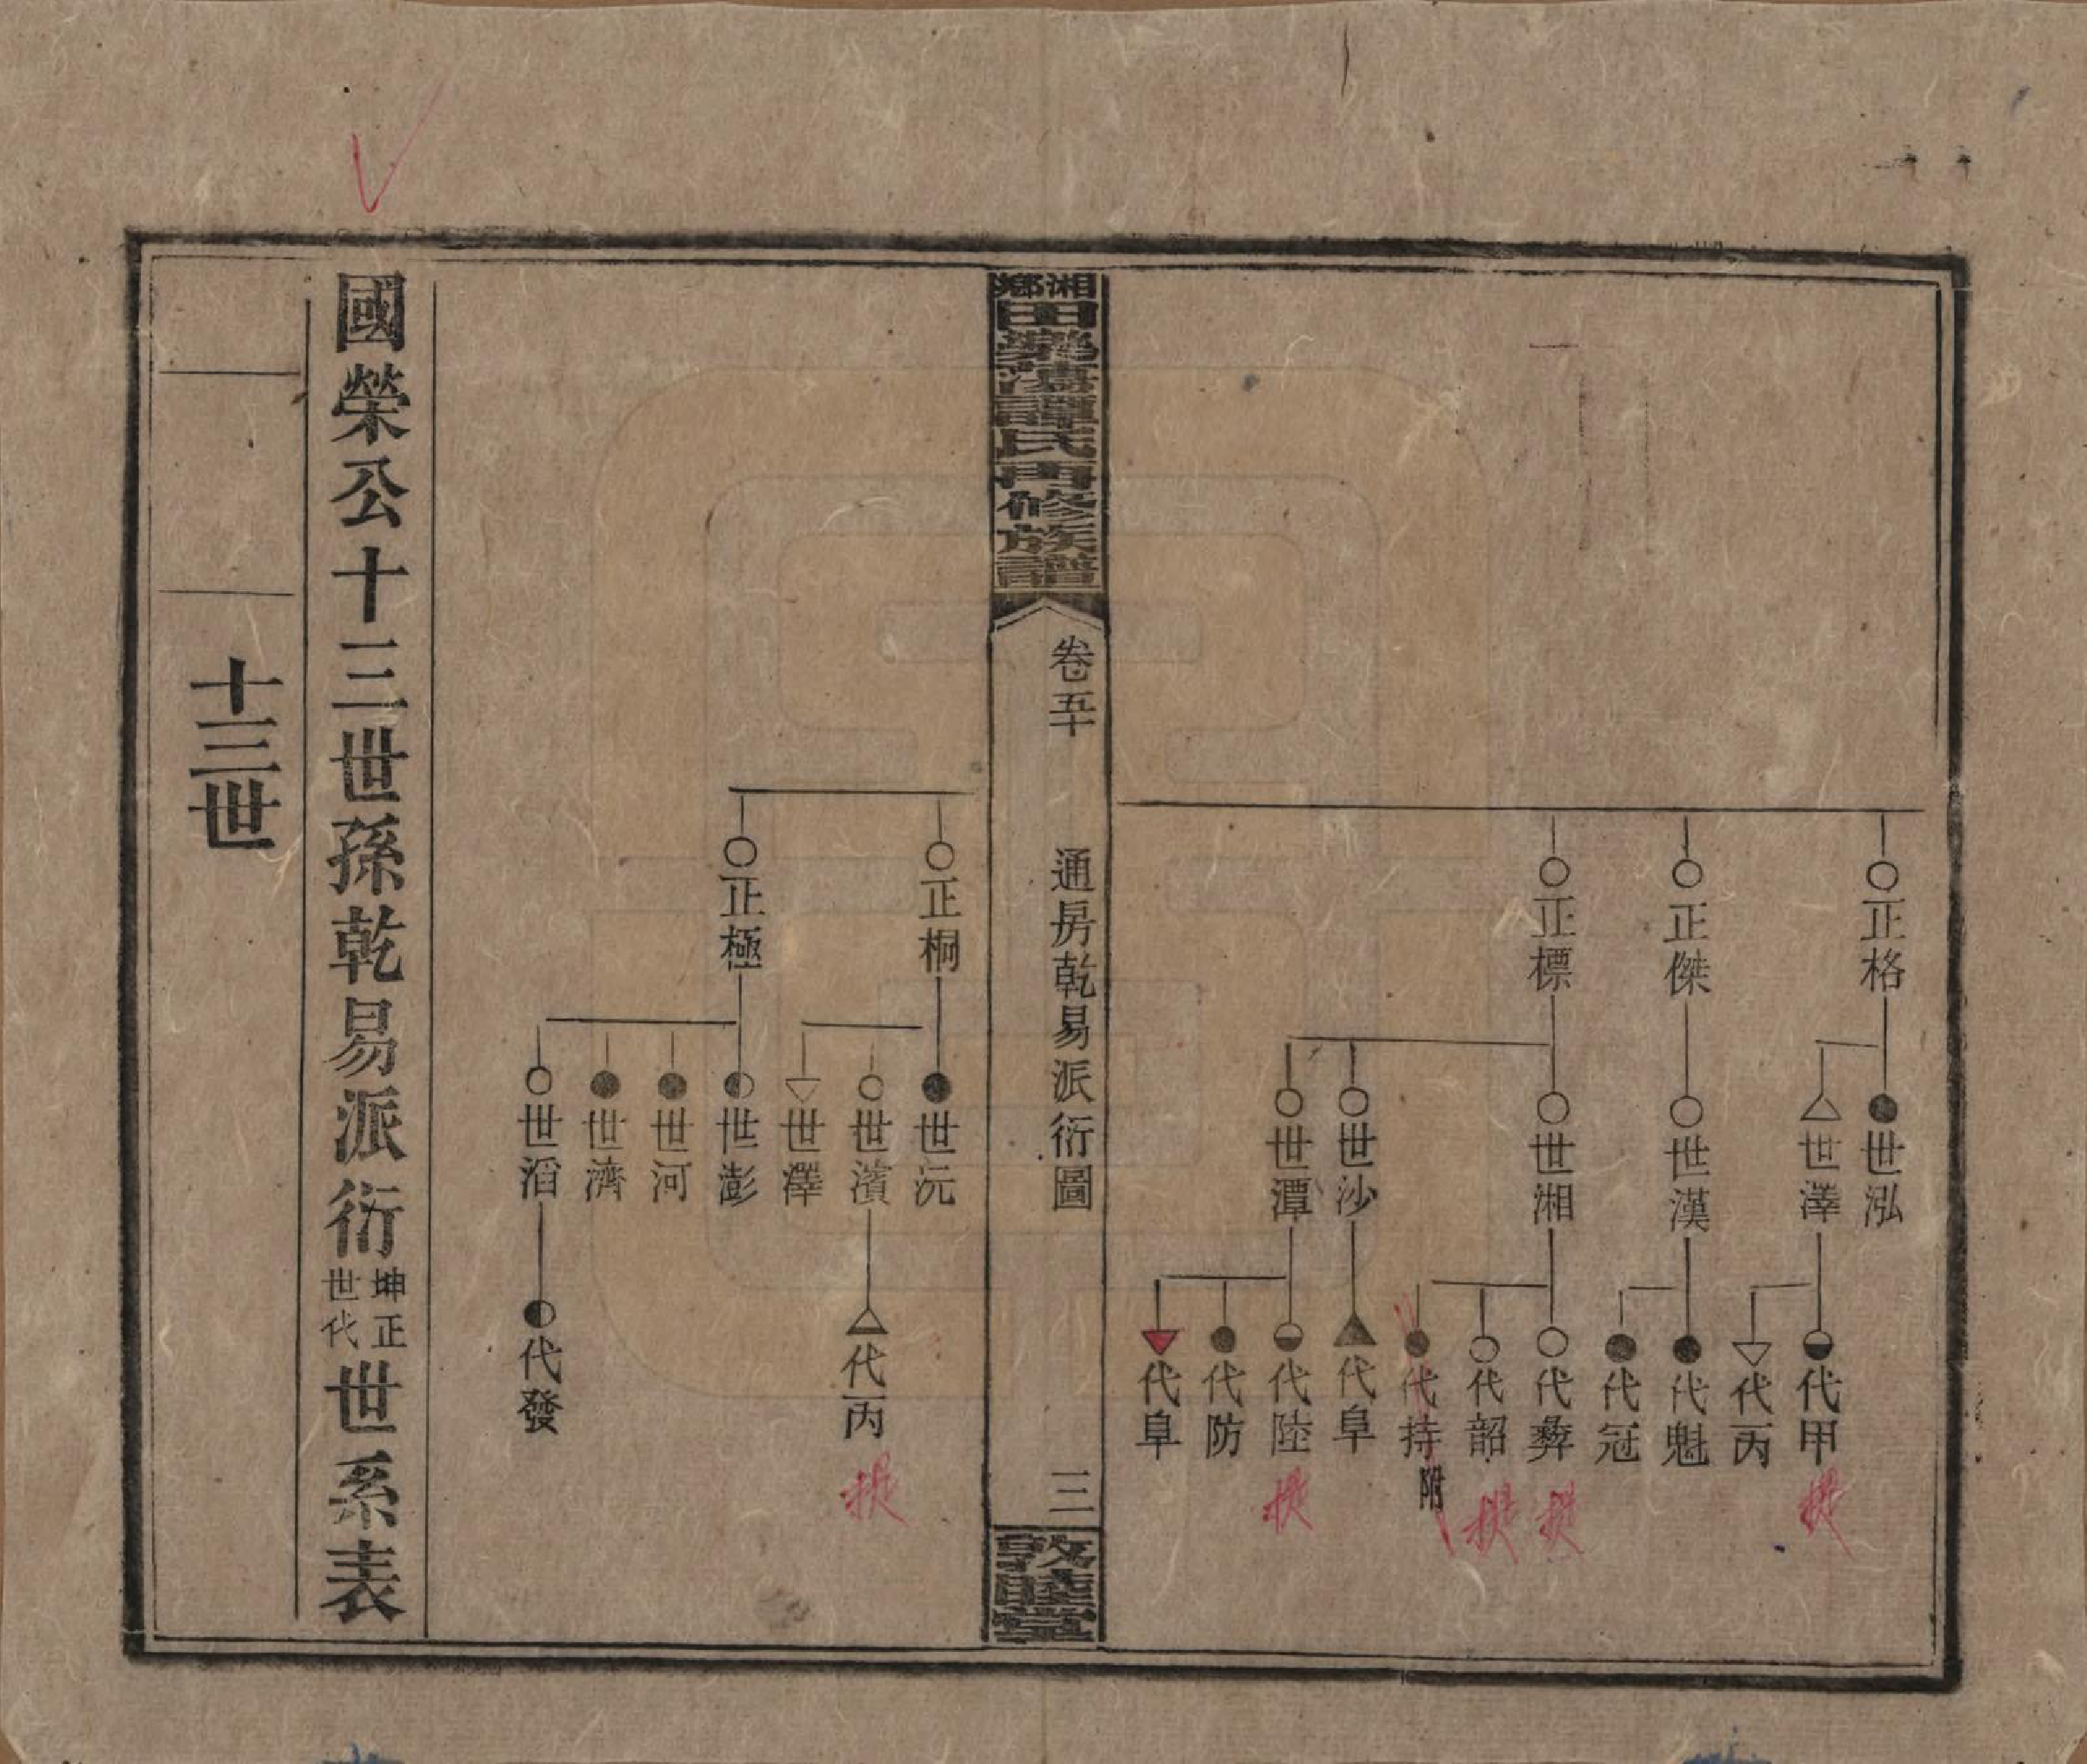 正格
正傑
正標
世泓
世澤
世漢
世湘
世沙
世潭
代甲
代丙
代魁
代冠
代彝
代韶
代持附
代阜
代陸
代防
代阜
湘鄉
田樂藹譚氏再修族譜
卷五十
通房乾易派衍圖
三
敦睦堂
正桐
正極
世沅
世濱
世澤
世澎
世河
世濟
世滔
代丙
代發
國榮公十三世孫乾易派衍坤正世代世系表
十三世